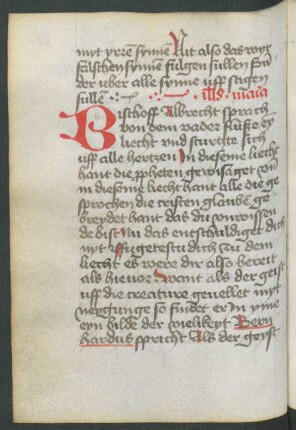 myt yrrē synne Nit also das wyr
falschen synnen fulgen sullen sun
der uber alle synne uff stigen
sullē ihs maria
Bischoff Albrecht sprach
von dem vader
liecht und sturtzte sich
uff alle hertzen In dieseme liecht
hant die ppheten gewissaget
in diesenne liecht hant alle die ge
sprochen die cristen glauben ge
breydet hant das du
de bist Nu das entschuldiget dich
nyt du dich zu dem
liecht es were dir also bereit
als hievor Want als der geist
uff die creature gevellet myt
so findet er in yme
eyn bilde der Bern
hardus spricht Als der geyst